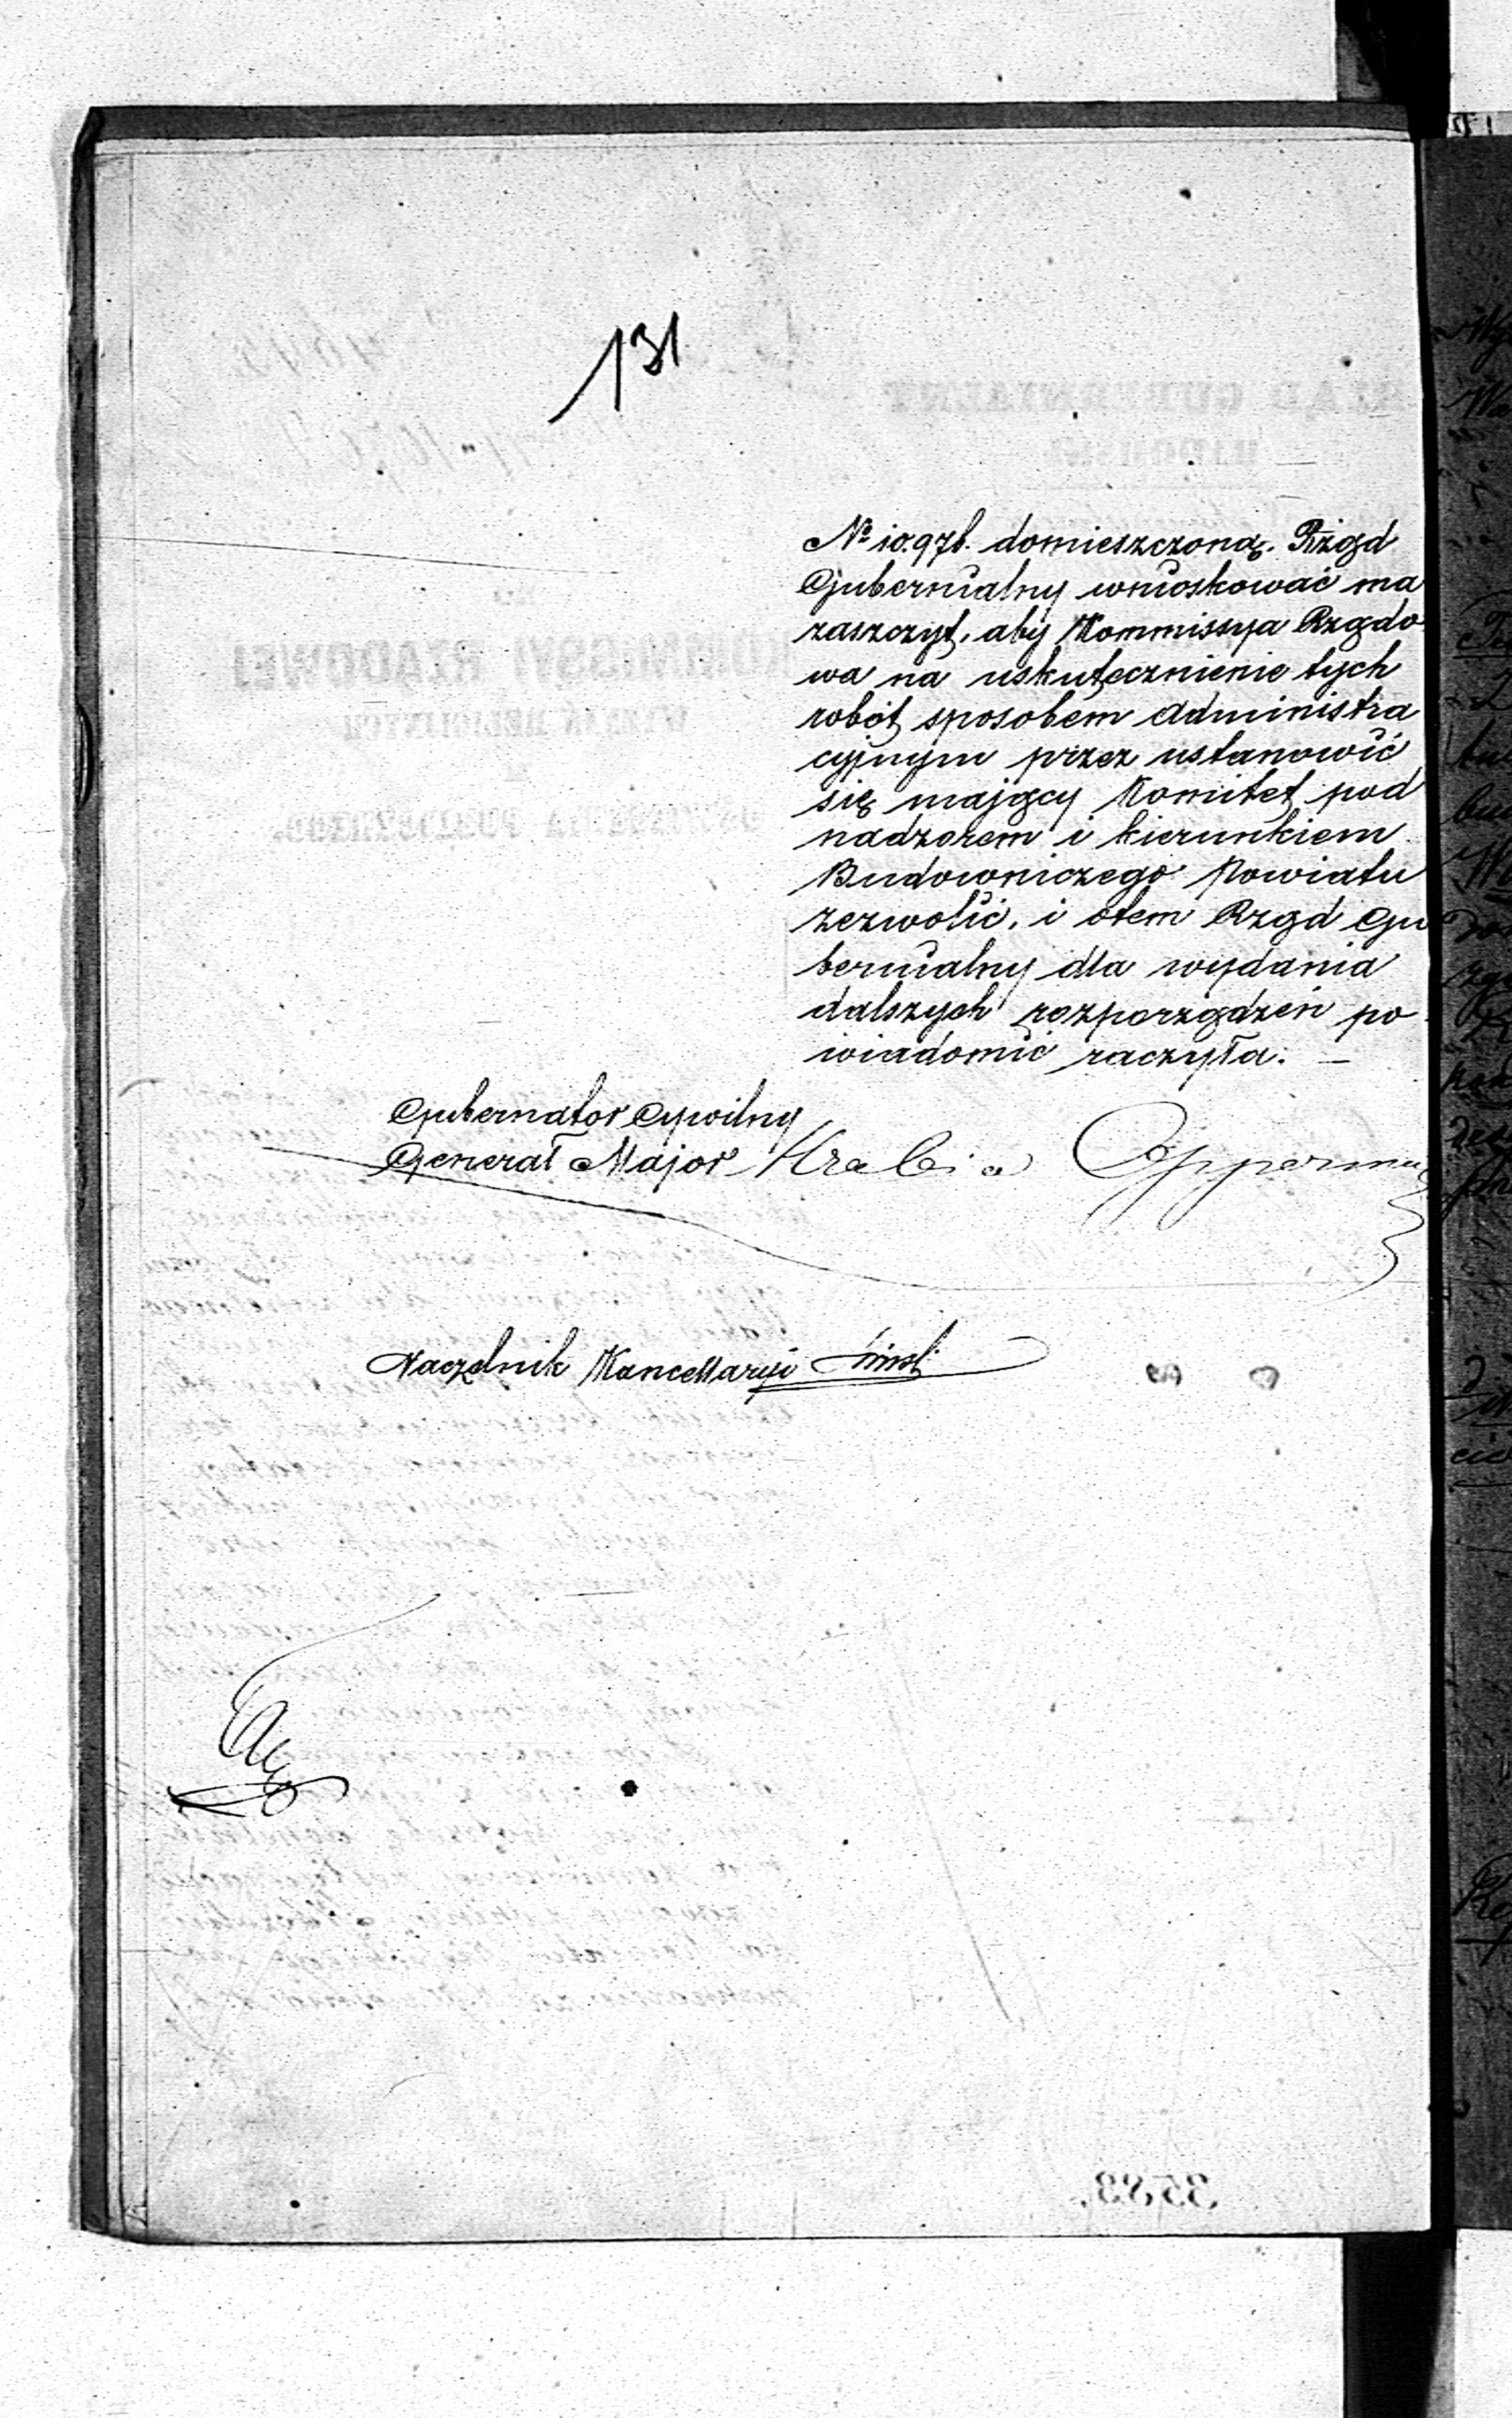 131
№ 10.976. domieszczoną. Rząd
Gubernialny wnioskować ma
zaszczyt, aby Kommissya Rządo
wa na uskutecznienie tych
robót sposobem administra
cyjnym przez ustanowić
się mający Komitet pod
nadzorem i kierunkiem
Budowniczego Powiatu
zezwolić, i otem Rząd Gu
bernialny dla wydania
dalszych rozporządzeń po
wiadomić raczyła. —
Gubernator Cywilny
Generał Major Hrabia Opperman
Naczelnik Kancellaryi